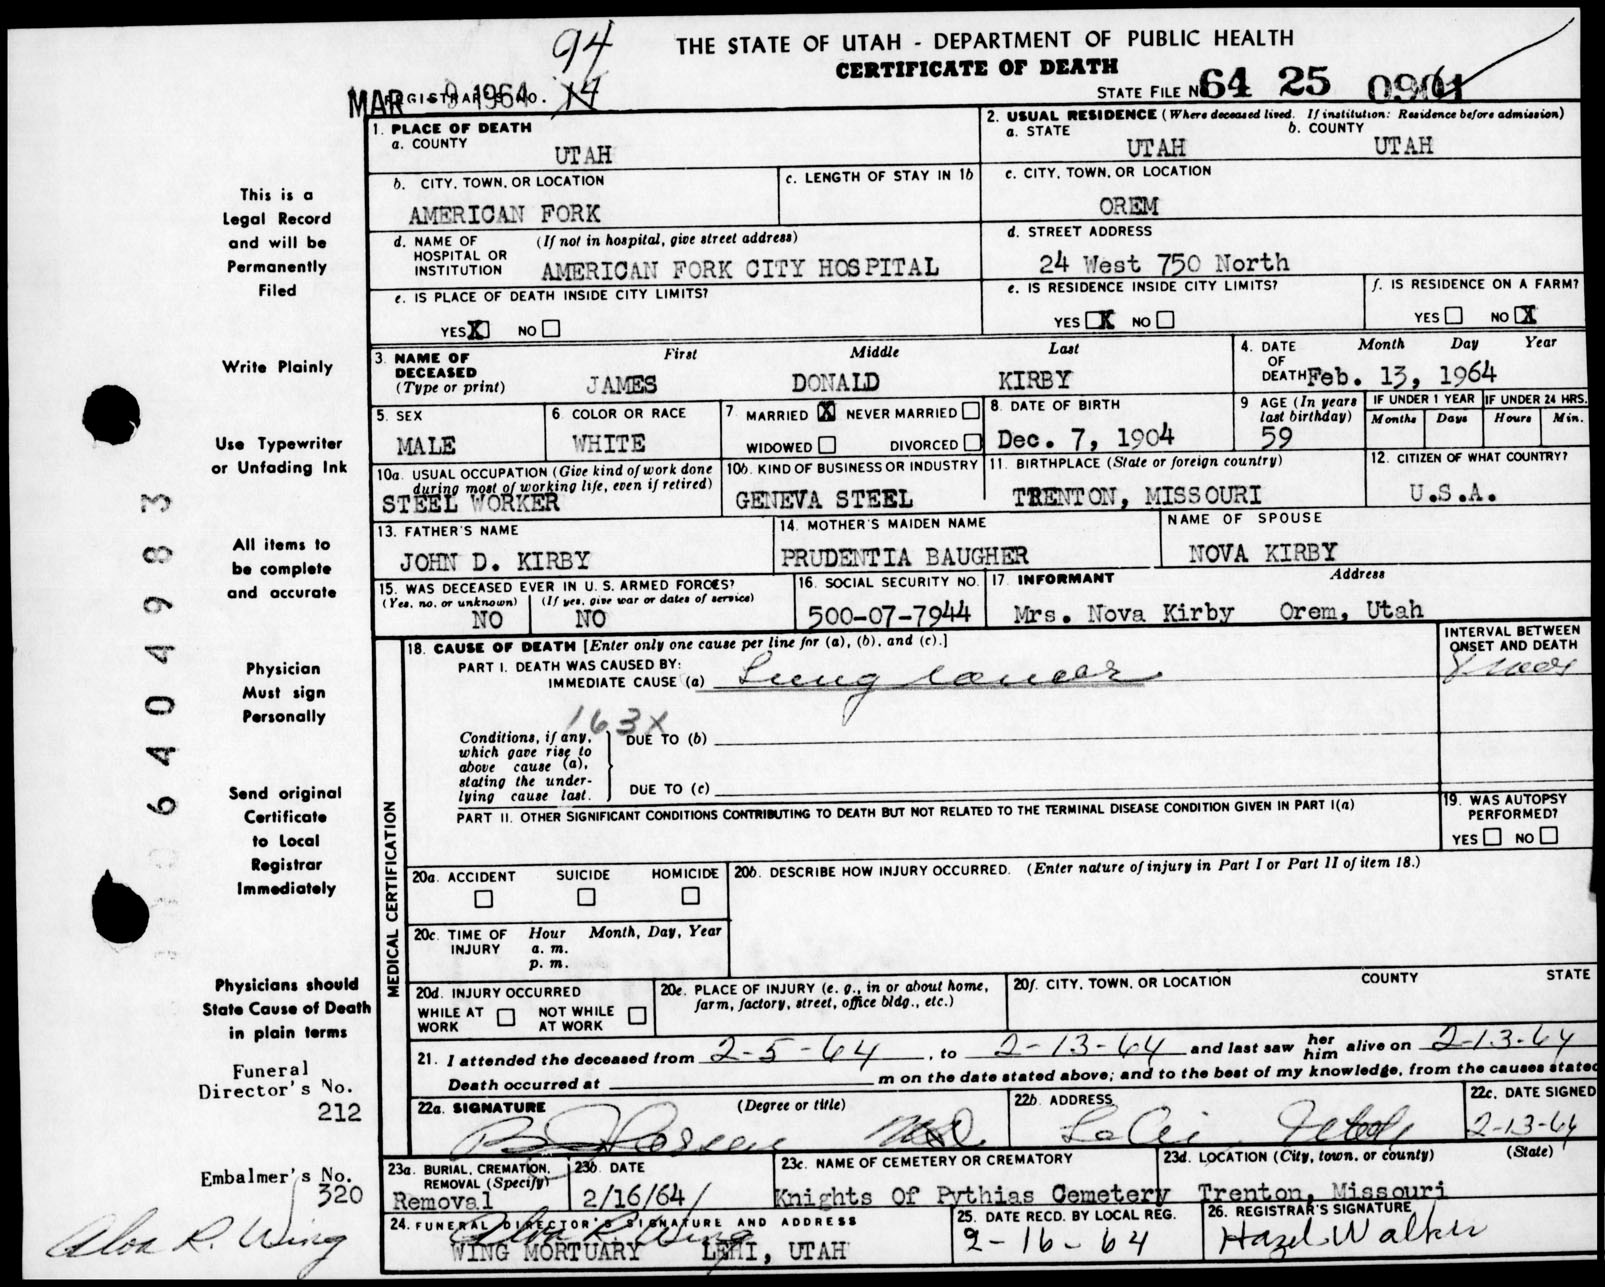 94
THE STATE OF UTAH - DEPARTMENT OF PUBLIC HEALTH
CERTIFICATE OF DEATH
MAR 9 1964 REGISTRAR'S NO. 14
STATE FILE No 64 25 0901
1. PLACE OF DEATH
a. COUNTY
UTAH
2. USUAL RESIDENCE (Where deceased lived. If institution: Residence before admission)
a. STATE b. COUNTY
UTAH UTAH
b. CITY, TOWN, OR LOCATION c. LENGTH OF STAY IN 1b
AMERICAN FORK
c. CITY, TOWN, OR LOCATION
OREM
d. NAME OF HOSPITAL OR INSTITUTION (If not in hospital, give street address)
AMERICAN FORK CITY HOSPITAL
d. STREET ADDRESS
24 West 750 North
e. IS PLACE OF DEATH INSIDE CITY LIMITS?
YES X NO
e. IS RESIDENCE INSIDE CITY LIMITS?
YES X NO
f. IS RESIDENCE ON A FARM?
YES NO X
3. NAME OF DECEASED (Type or print) First Middle Last
JAMES DONALD KIRBY
4. DATE OF DEATH Month Day Year
Feb. 13, 1964
5. SEX
MALE
6. COLOR OR RACE
WHITE
7. MARRIED X NEVER MARRIED
WIDOWED DIVORCED
8. DATE OF BIRTH
Dec. 7, 1904
9 AGE (In years last birthday)
59
IF UNDER 1 YEAR IF UNDER 24 HRS.
Months Days Hours Min.
10a. USUAL OCCUPATION (Give kind of work done during most of working life, even if retired)
STEEL WORKER
10b. KIND OF BUSINESS OR INDUSTRY
GENEVA STEEL
11. BIRTHPLACE (State or foreign country)
TRENTON, MISSOURI
12. CITIZEN OF WHAT COUNTRY?
U.S.A.
13. FATHER'S NAME
JOHN D. KIRBY
14. MOTHER'S MAIDEN NAME
PRUDENTIA BAUGHER
NAME OF SPOUSE
NOVA KIRBY
15. WAS DECEASED EVER IN U. S. ARMED FORCES?
(Yes, no, or unknown) (If yes, give war or dates of service)
NO NO
16. SOCIAL SECURITY NO.
500-07-7944
17. INFORMANT Address
Mrs. Nova Kirby Orem, Utah
MEDICAL CERTIFICATION
18. CAUSE OF DEATH [Enter only one cause per line for (a), (b), and (c).]
INTERVAL BETWEEN ONSET AND DEATH
PART I. DEATH WAS CAUSED BY:
IMMEDIATE CAUSE (a) Lung cancer
163X
Conditions, if any, which gave rise to above cause (a), stating the underlying cause last.
DUE TO (b)
DUE TO (c)
PART II. OTHER SIGNIFICANT CONDITIONS CONTRIBUTING TO DEATH BUT NOT RELATED TO THE TERMINAL DISEASE CONDITION GIVEN IN PART I(a)
19. WAS AUTOPSY PERFORMED?
YES NO
20a. ACCIDENT SUICIDE HOMICIDE
20b. DESCRIBE HOW INJURY OCCURRED. (Enter nature of injury in Part I or Part II of item 18.)
20c. TIME OF INJURY Hour Month, Day, Year
a. m.
p. m.
20d. INJURY OCCURRED
WHILE AT WORK NOT WHILE AT WORK
20e. PLACE OF INJURY (e. g., in or about home, farm, factory, street, office bldg., etc.)
20f. CITY, TOWN, OR LOCATION COUNTY STATE
21. I attended the deceased from 2-5-64, to 2-13-64 and last saw her him alive on 2-13-64
Death occurred at m on the date stated above; and to the best of my knowledge, from the causes stated
22a. SIGNATURE (Degree or title)
22b. ADDRESS
Lehi Utah
22c. DATE SIGNED
2-13-64
23a. BURIAL, CREMATION, REMOVAL (Specify)
Removal
23b. DATE
2/16/64
23c. NAME OF CEMETERY OR CREMATORY
Knights Of Pythias Cemetery
23d. LOCATION (City, town, or county) (State)
Trenton, Missouri
24. FUNERAL DIRECTOR'S SIGNATURE AND ADDRESS
Alva R. Wing
WING MORTUARY LEHI, UTAH
25. DATE RECD. BY LOCAL REG.
2-16-64
26. REGISTRAR'S SIGNATURE
Hazel Walker
This is a
Legal Record
and will be
Permanently
Filed
Write Plainly
Use Typewriter
or Unfading Ink
All items to
be complete
and accurate
Physician
Must sign
Personally
Send original
Certificate
to Local
Registrar
Immediately
Physicians should
State Cause of Death
in plain terms
Funeral
Director's No.
212
Embalmer's No.
320
Alva R. Wing
6404983